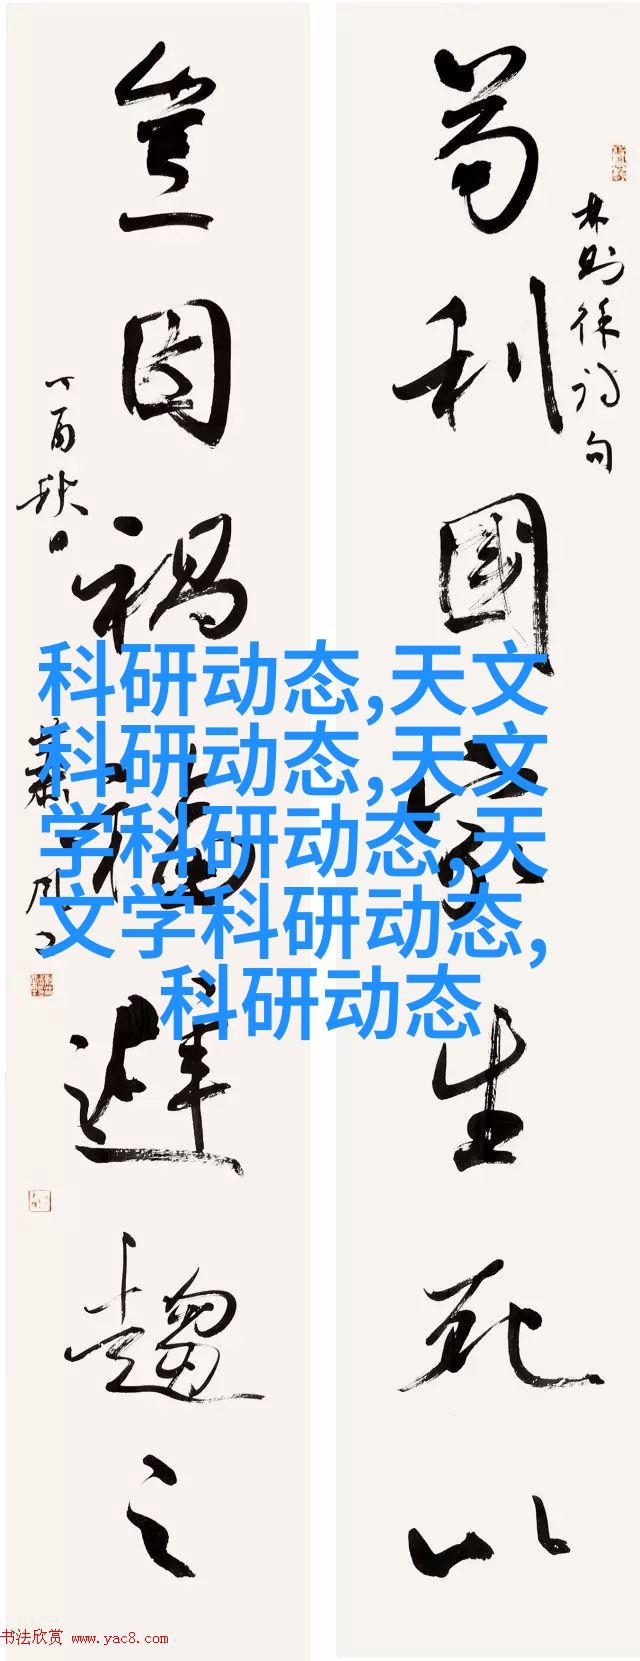 苟利國家生死以
林则徐诗句
豈因禍福避趨之
丁酉秋日
科研动态,天文
科研动态,天文
学科研动态,天
文学科研动态,
科研动态
书法欣赏 www.yac8.com